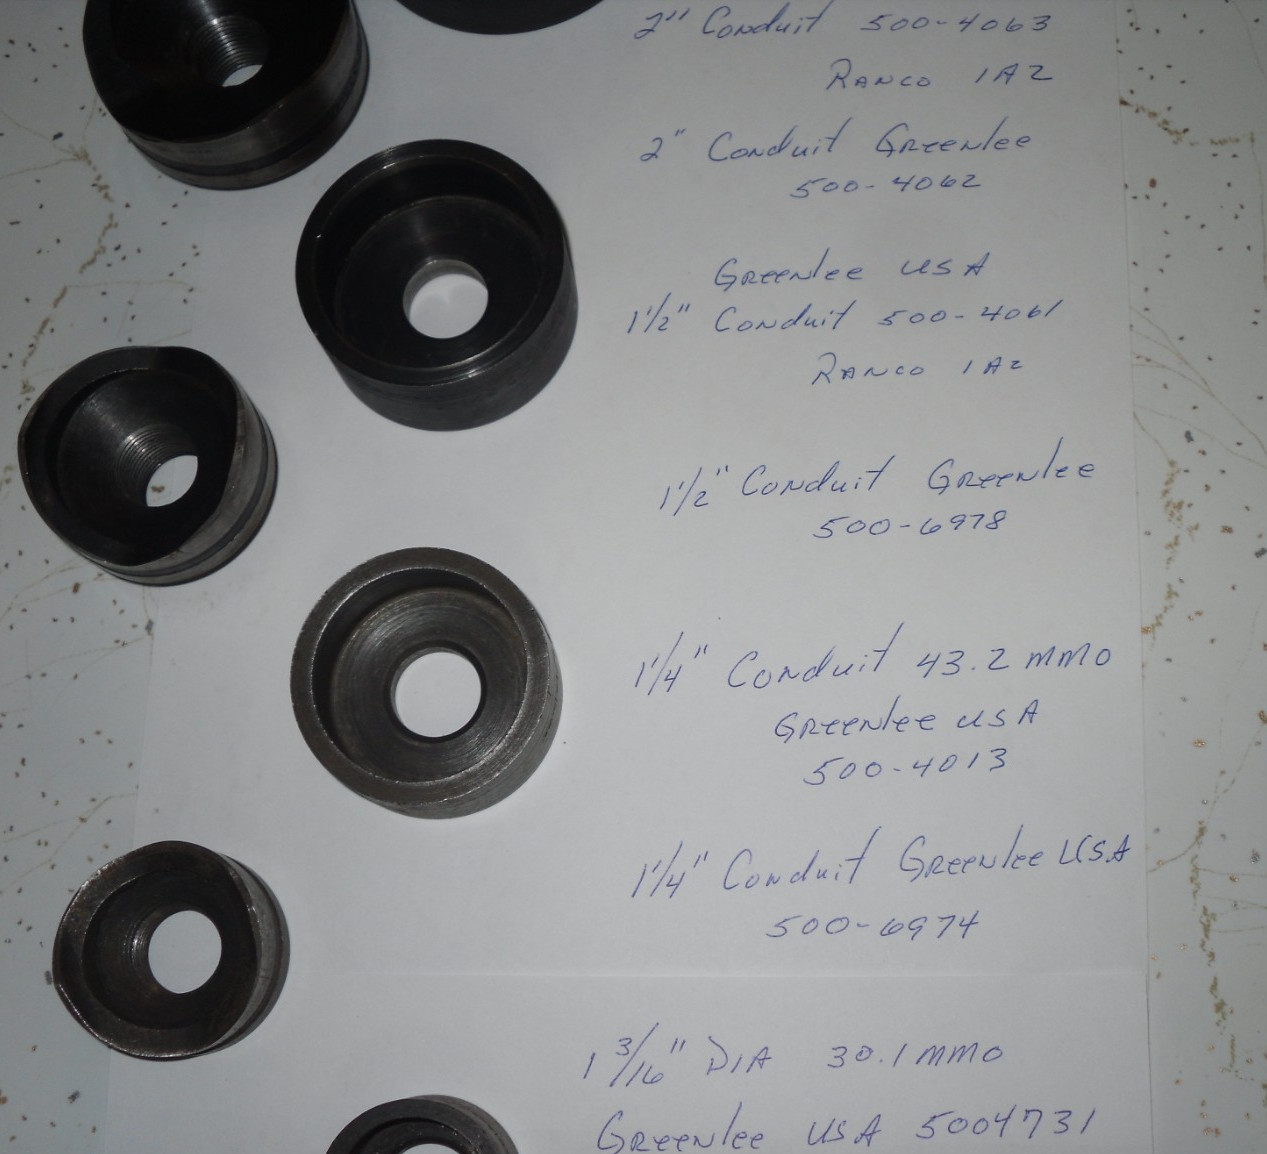 2" Conduit 500-4063
RANCO 1A2
2" Conduit Greenlee
500-4062
Greenlee USA
1 1/2" Conduit 500-4061
RANCO 1A2
1 1/2" Conduit Greenlee
500-6978
1 1/4" Conduit 43.2 MMO
Greenlee USA
500-4013
1 1/4" Conduit Greenlee USA
500-6974
1 3/16" DIA 30.1 MMO
Greenlee USA 5004731